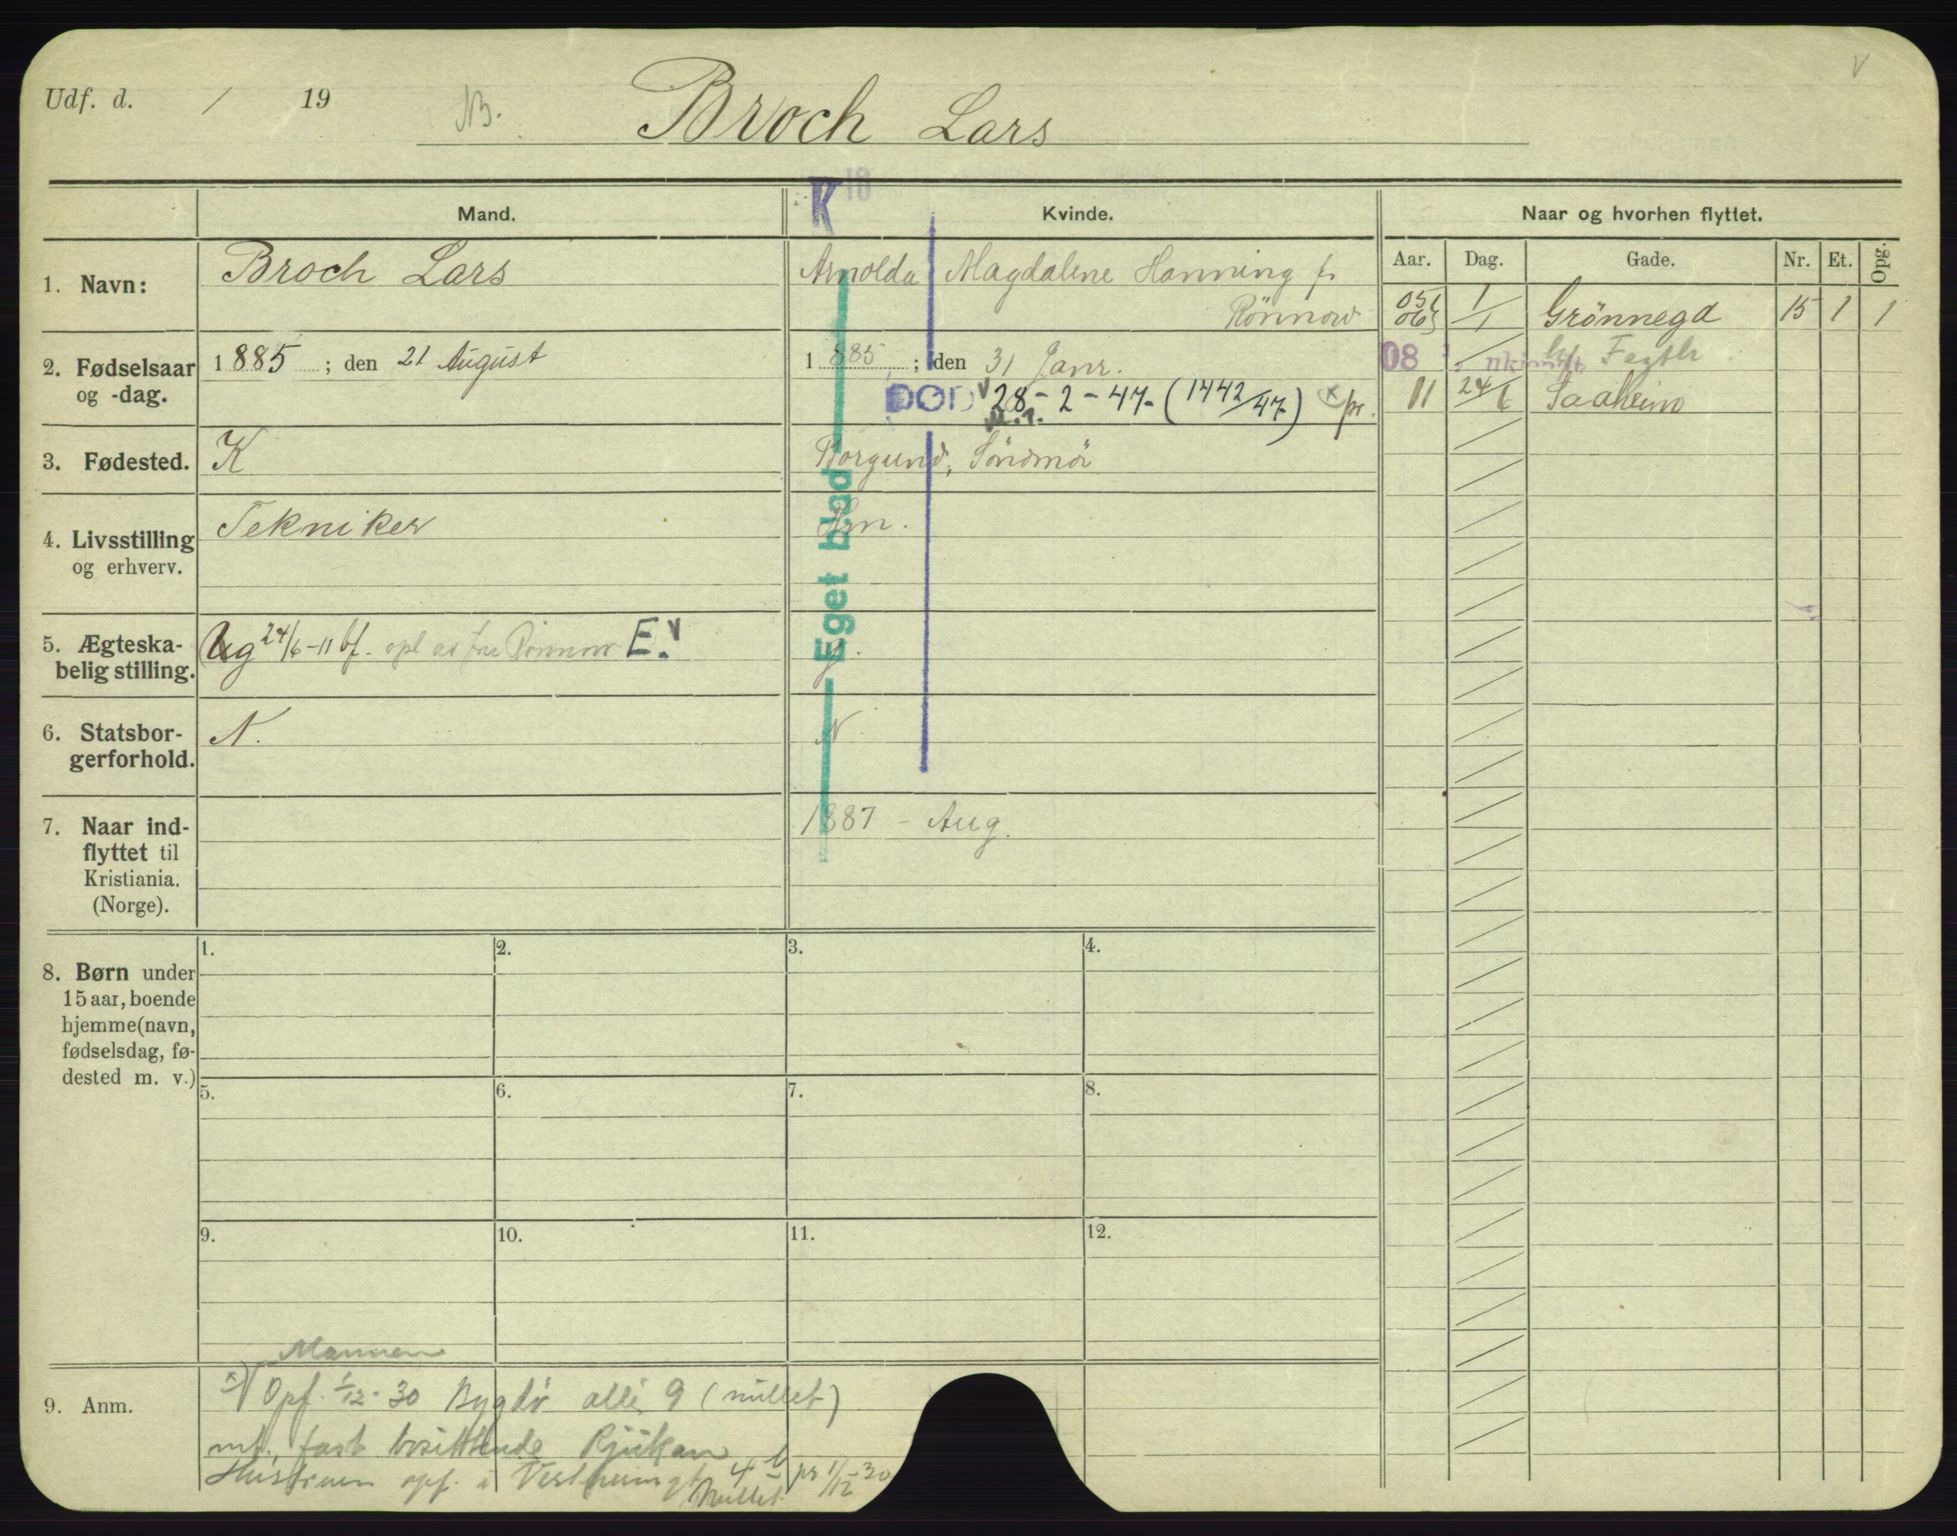 Udf. d. / 19 NB. Broch Lars V
K 18
Mand. Kvinde. Naar og hvorhen flyttet.
Aar. Dag. Gade. Nr. Et. Opg.
1. Navn: Broch Lars
Arnolda Magdalene Hanning f.
Rönnow
05 06 1/1 Grönnegd 15 1 1
2. Fødselsaar og -dag.
1885 ; den 21 August
1885 ; den 31 Janr.
08
DØD 28-2-47- (1442/47) x pr.
11 24/6 Saaheim
3. Fødested. K
Borgund, Söndmör
4. Livsstilling og erhverv.
Tekniker
Hm.
Eget blad
5. Ægteska-
belig stilling.
Ug 24/6-11 bf. opl av fru Rönnow E. V
g.
6. Statsbor-
gerforhold.
N.
N.
7. Naar ind-
flyttet til
Kristiania.
(Norge).
1887 - Aug.
8. Børn under
15 aar, boende
hjemme (navn,
fødselsdag, fø-
dested m. v.)
1. 2. 3. 4.
5. 6. 7. 8.
9. 10. 11. 12.
Mannen
9. Anm.
x) Opf. 1/12-30 Bygdö allé 9 (nullet)
mt. fast bosittende Rjukan
Hustruen opf. i Vestheimgt 4 b pr 1/12-30
Nullet